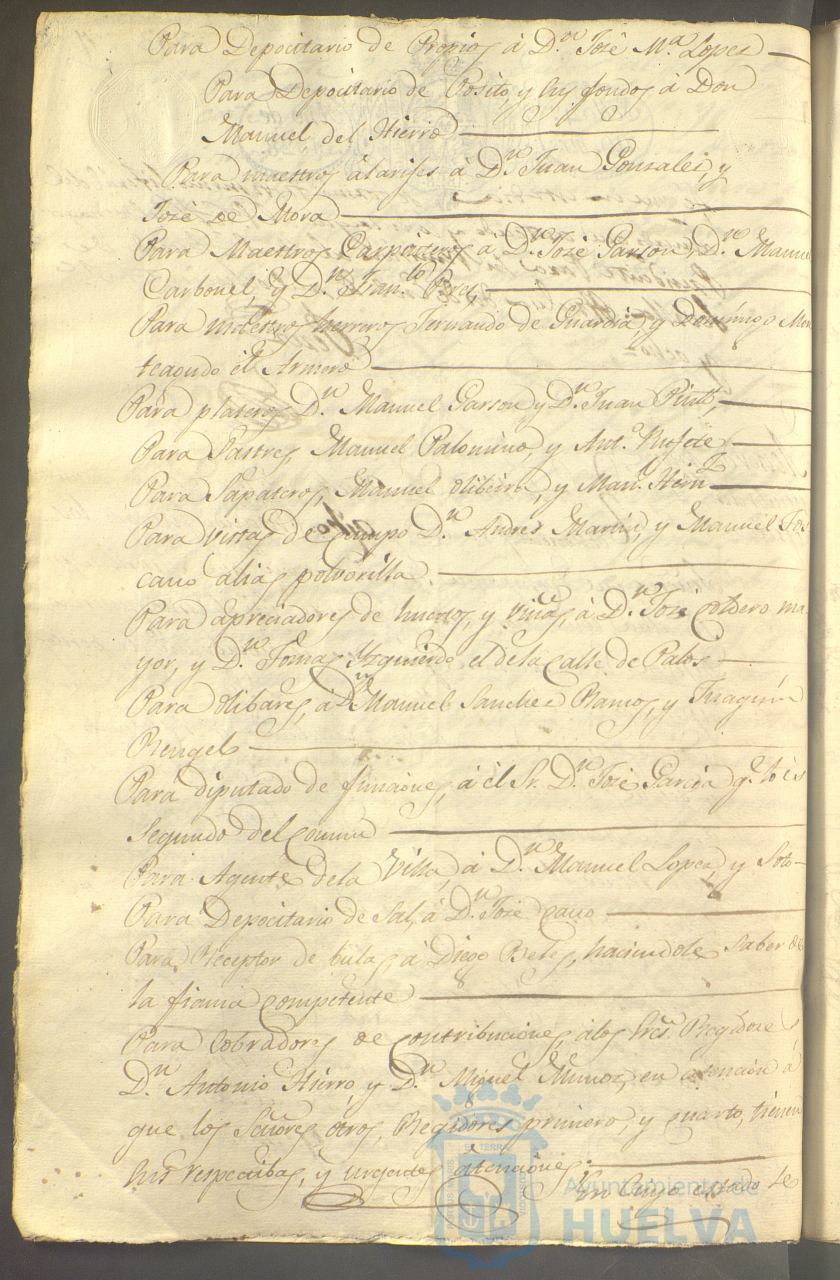 Para Depocitario de Propios á D.n José M.a Lopez
Para Depocitario de Posito, y sus fondos á Don
Manuel del Hierro
Para maestros alarifes á D.n Juan Gonzales, y
José de Mora
Para Maestros Carpinteros á D.n José Garson, D.n Manuel
Carbonel, y D.n Fran.co Perez
Para maestros herreros Fernando de Guardia, y Domingo Mon
teagudo el Armero
Para plateros D.n Manuel Garson y D.n Juan Pinto,
Para Sastres, Manuel Palomino, y Ant.o
Para Sapateros, Manuel Olibeira, y Man.l
Para vistas de Campo D.n Andres Martin, y Manuel Tos
cano alias polvorilla.
Para apreciadores de huertos, y viñas, á D.n José Cordero ma
yor, y D.n Tomas Yzquierdo, el de la Calle de Palos
Para Olibares, á D.n Manuel Sanchez Ramos, y Juaquin
Rengel
Para diputado de funciones, á el Sr. D.n José Garcia q.e lo es
Segundo del comun
Para Agente de la Villa, á D.n Manuel Lopez, y Soto
Para Depocitario de Sal, á D.n José Cano
Para Receptor de bulas, á Diego Belez, haciendole saber de
la fianza competente
Para Cobradores de Contribuciones, á los Sres. Regidores
D.n Antonio Hierro, y D.n Miguel Muñoz, en atencion á
que los Señores otros, Regidores primero, y cuarto, tienen
sus respectibas, y urgentes atenciones. En cuyo estado se
Ayuntamiento de
HUELVA